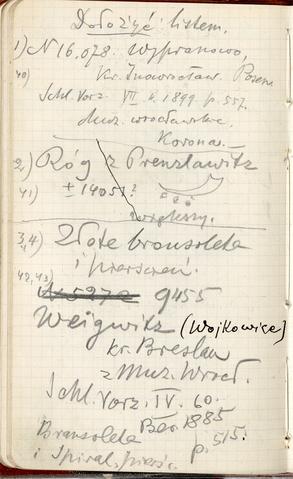 Dołożyć listem.
1) N 16.078. Wypranowo,
40) Kr. Inowrocław. Posen
Schl. Vorz. VII 6. 1899 p. 557.
Muz. wrocławskie.
Korona.
2) Róg z Prenzlawitz
41) ± 1405?
większy.
3,4) Złote bransoleta
i pierścień.
42,43)
9455
Weigwitz (Wojkowice)
Kr. Breslau
z Muz. Wrocł.
Schl. Vorz. IV. 60.
Ber. 1885
Bransoleta p. 515.
i Spiral. pierśc.